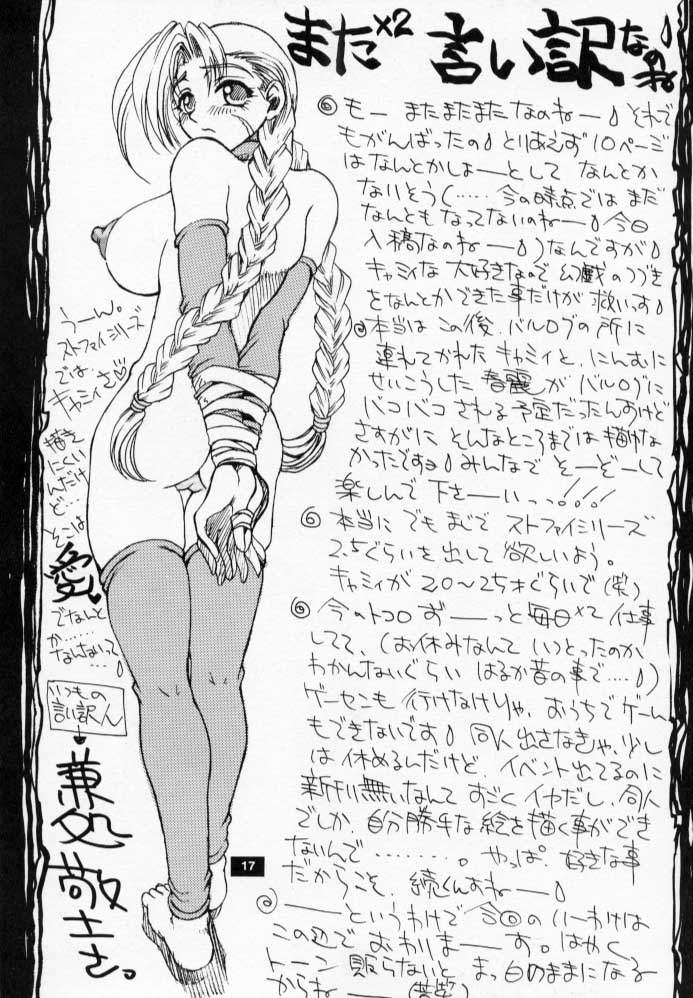 まだ×2 言い訳なのね
◎もー まだまだまだ なのねー それで
もがんばったの とりあえず10ページ
はなんとかしよーとして なんとか
ないそう(……今の時点ではまだ
なんともなってないのねー 今日
入稿なのねー)なんですが
キャミィな 大好きなので 幻戯のつづき
をなんとかできた事だけが 救いっす
◎本当は この後、バルログの所に
連れてかれた キャミィと、にんむに
せいこうした 春麗が バルログに
バコバコ される予定だったんすけど
さすがに そんなところまでは描けな
かったですョ みんなで そーぞーして
楽しんで 下さーいっっ!!!
◎本当に でも まじで ストファイシリーズ
2.5ぐらいを出して 欲しいよう。
キャミィが 20〜25才ぐらいで(笑)
◎今のトコロ ずーっと 毎日×2 仕事
してて、(お休みなんて いつとったのか
わかんないぐらい はるか昔の事で…)
ゲーセンも 行けなけりゃ、おうちでゲーム
もできないです 同人出さなきゃ、少し
は 休めるんだけど、イベント出てるのに
新刊無いなんて すごく イヤだし、同人
でしか、自分勝手な絵を描く事ができ
ないんで………。やっぱ、好きな事
だからこそ、続くんすねー
◎――というわけで 今回の いーわけは
この辺で おわりまーす。はやく
トーン 貼らないと まっ白のままになる
からねー(苦笑)
うーん。
ストファイシリーズ
では、
キャミィさ♡
描き
にくい
んだけ
ど…
そこは
愛
でなんと
か……
なんないって
…
いつもの
言い訳ん
兼処敬士さ。
17